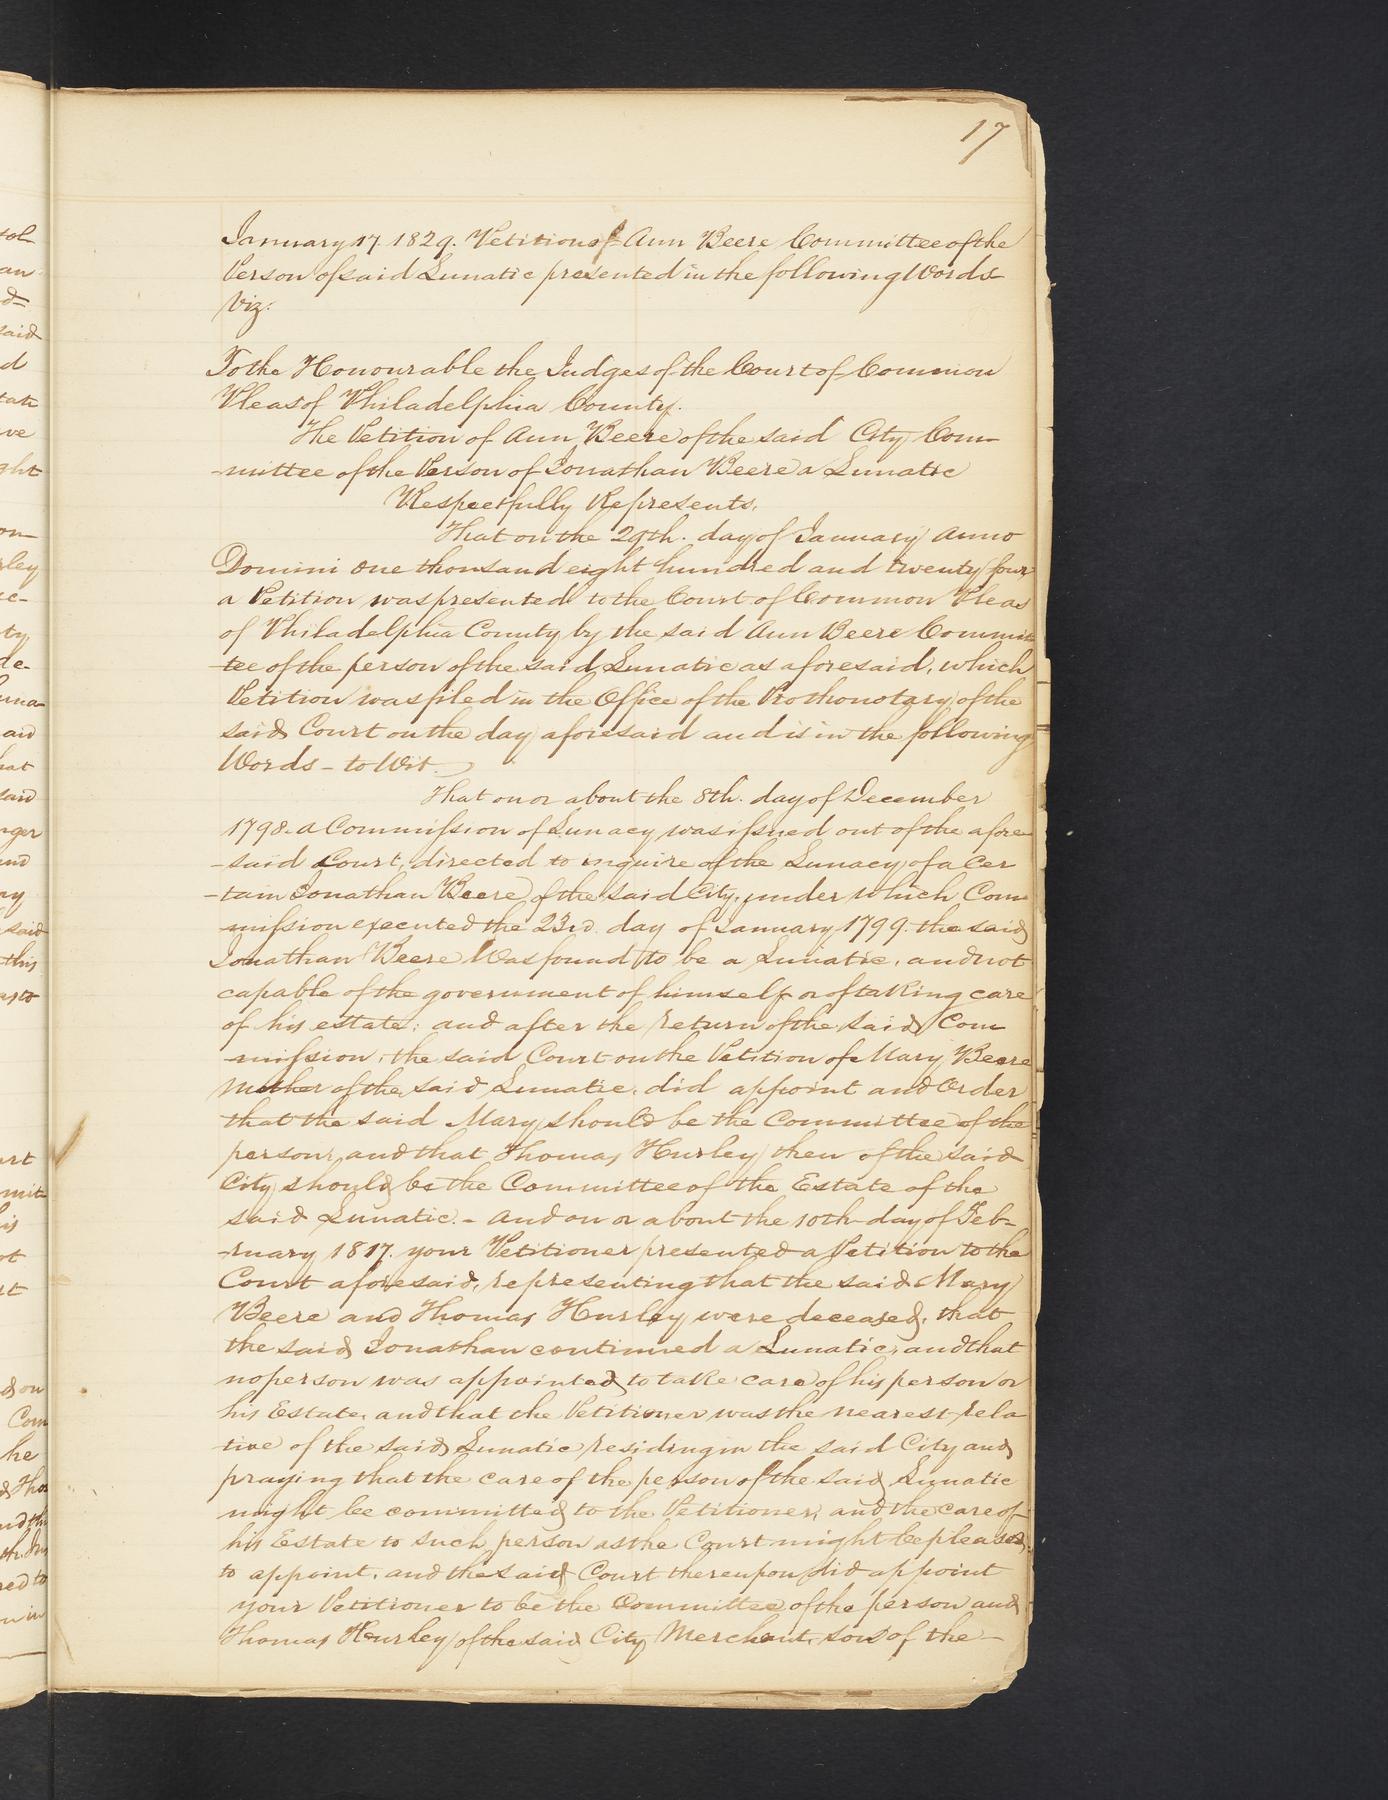 17
January 17. 1829. Petition of Ann Beere Committee of the
Person of said Lunatic presented in the following Words
Viz:
To the Honourable the Judges of the Court of Common
Pleas of Philadelphia County.
The Petition of Ann Beere of the said City Com-
-mittee of the Person of Jonathan Beere a Lunatic
Respectfully Represents.
That on the 29th. day of January Anno
Domini one thousand eight hundred and twenty four
a Petition was presented to the Court of Common Pleas
of Philadelphia County by the said Ann Beere Commit
-tee of the person of the said Lunatic as aforesaid, which
Petition was filed in the Office of the Prothonotary of the
said Court on the day aforesaid and is in the following
Words - to Wit.
That on or about the 8th. day of December
1798. a Commission of Lunacy was issued out of the afore
-said Court, directed to inquire of the Lunacy of a Cer
-tain Jonathan Beere of the said City, under which Com
-mission executed the 23rd. day of January 1799. the said
Jonathan Beere Was found to be a Lunatic, and not
capable of the government of himself or of taking care
of his estate; and after the return of the said Com
-mission, the said Court on the Petition of Mary Beere
Mother of the said Lunatic, did appoint and Order
that the said Mary should be the Committee of the
person, and that Thomas Hurley then of the said
City should be the Committee of the Estate of the
said Lunatic. - And on or about the 10th day of Feb-
-ruary 1817. your Petitioner presented a Petition to the
Court aforesaid, representing that the said Mary
Beere and Thomas Hurley were deceased, that
the said Jonathan continued a Lunatic, and that
no person was appointed to take care of his person or
his Estate, and that the Petitioner was the nearest rela
-tive of the said Lunatic residing in the said City and
praying that the care of the person of the said Lunatic
might be committed to the Petitioner, and the care of
his Estate to such person as the Court might be pleased
to appoint, and the said Court thereupon did appoint
your Petitioner to be the Committee of the person and
Thomas Hurley of the said City Merchant, son of the -